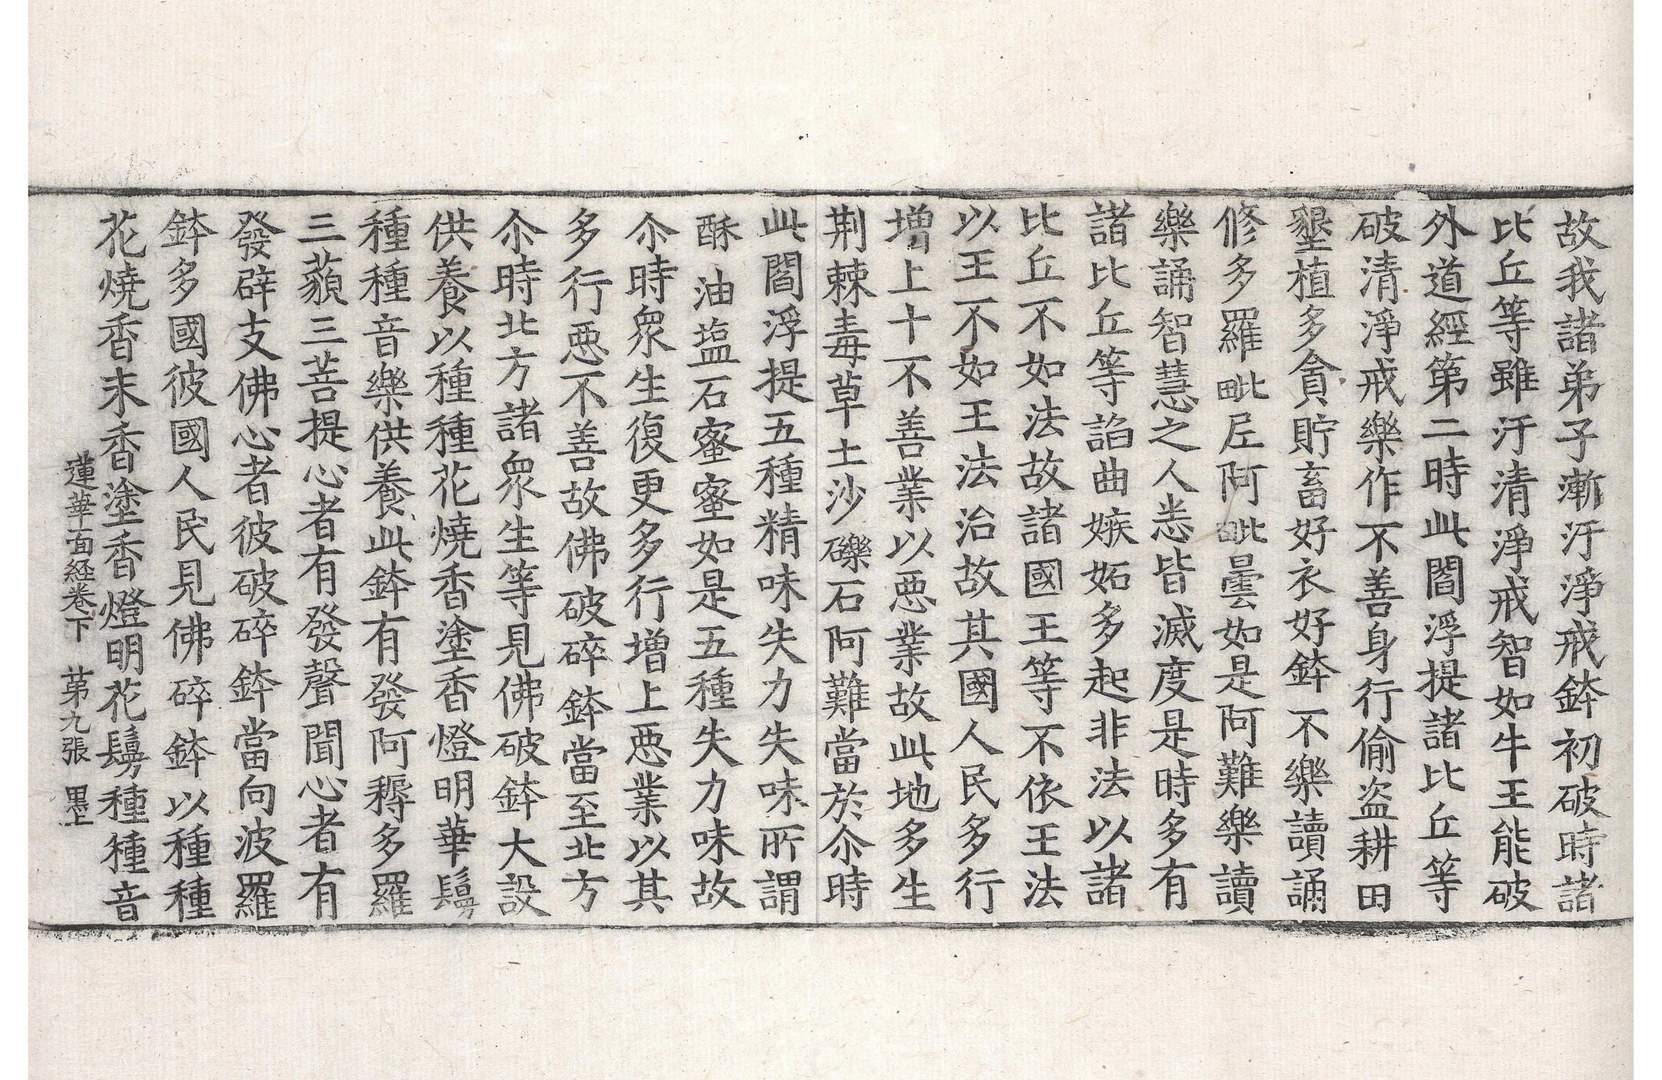 故我諸弟子漸汙淨戒鉢初破時諸
比丘等雖汙清淨戒智如牛王能破
外道經第二時此閻浮提諸比丘等
破清淨戒樂作不善身行偷盜耕田
墾植多貪貯畜好衣好鉢不樂讀誦
修多羅毗尼阿毗曇如是阿難樂讀
樂誦智慧之人悉皆滅度是時多有
諸比丘等諂曲嫉妬多起非法以諸
比丘不如法故諸國王等不依王法
以王不如王法治故其國人民多行
增上十不善業以惡業故此地多生
荆棘毒草土沙礫石阿難當於尒時
此閻浮提五種精味失力失味所謂
酥油塩石蜜蜜如是五種失力味故
尒時衆生復更多行增上惡業以其
多行惡不善故佛破碎鉢當至北方
尒時北方諸衆生等見佛破鉢大設
供養以種種花燒香塗香燈明華鬘
種種音樂供養此鉢有發阿耨多羅
三藐三菩提心者有發聲聞心者有
發辟支佛心者彼破碎鉢當向波羅
鉢多國彼國人民見佛碎鉢以種種
花燒香末香塗香燈明花鬘種種音
蓮華面経卷下 第九張 墨